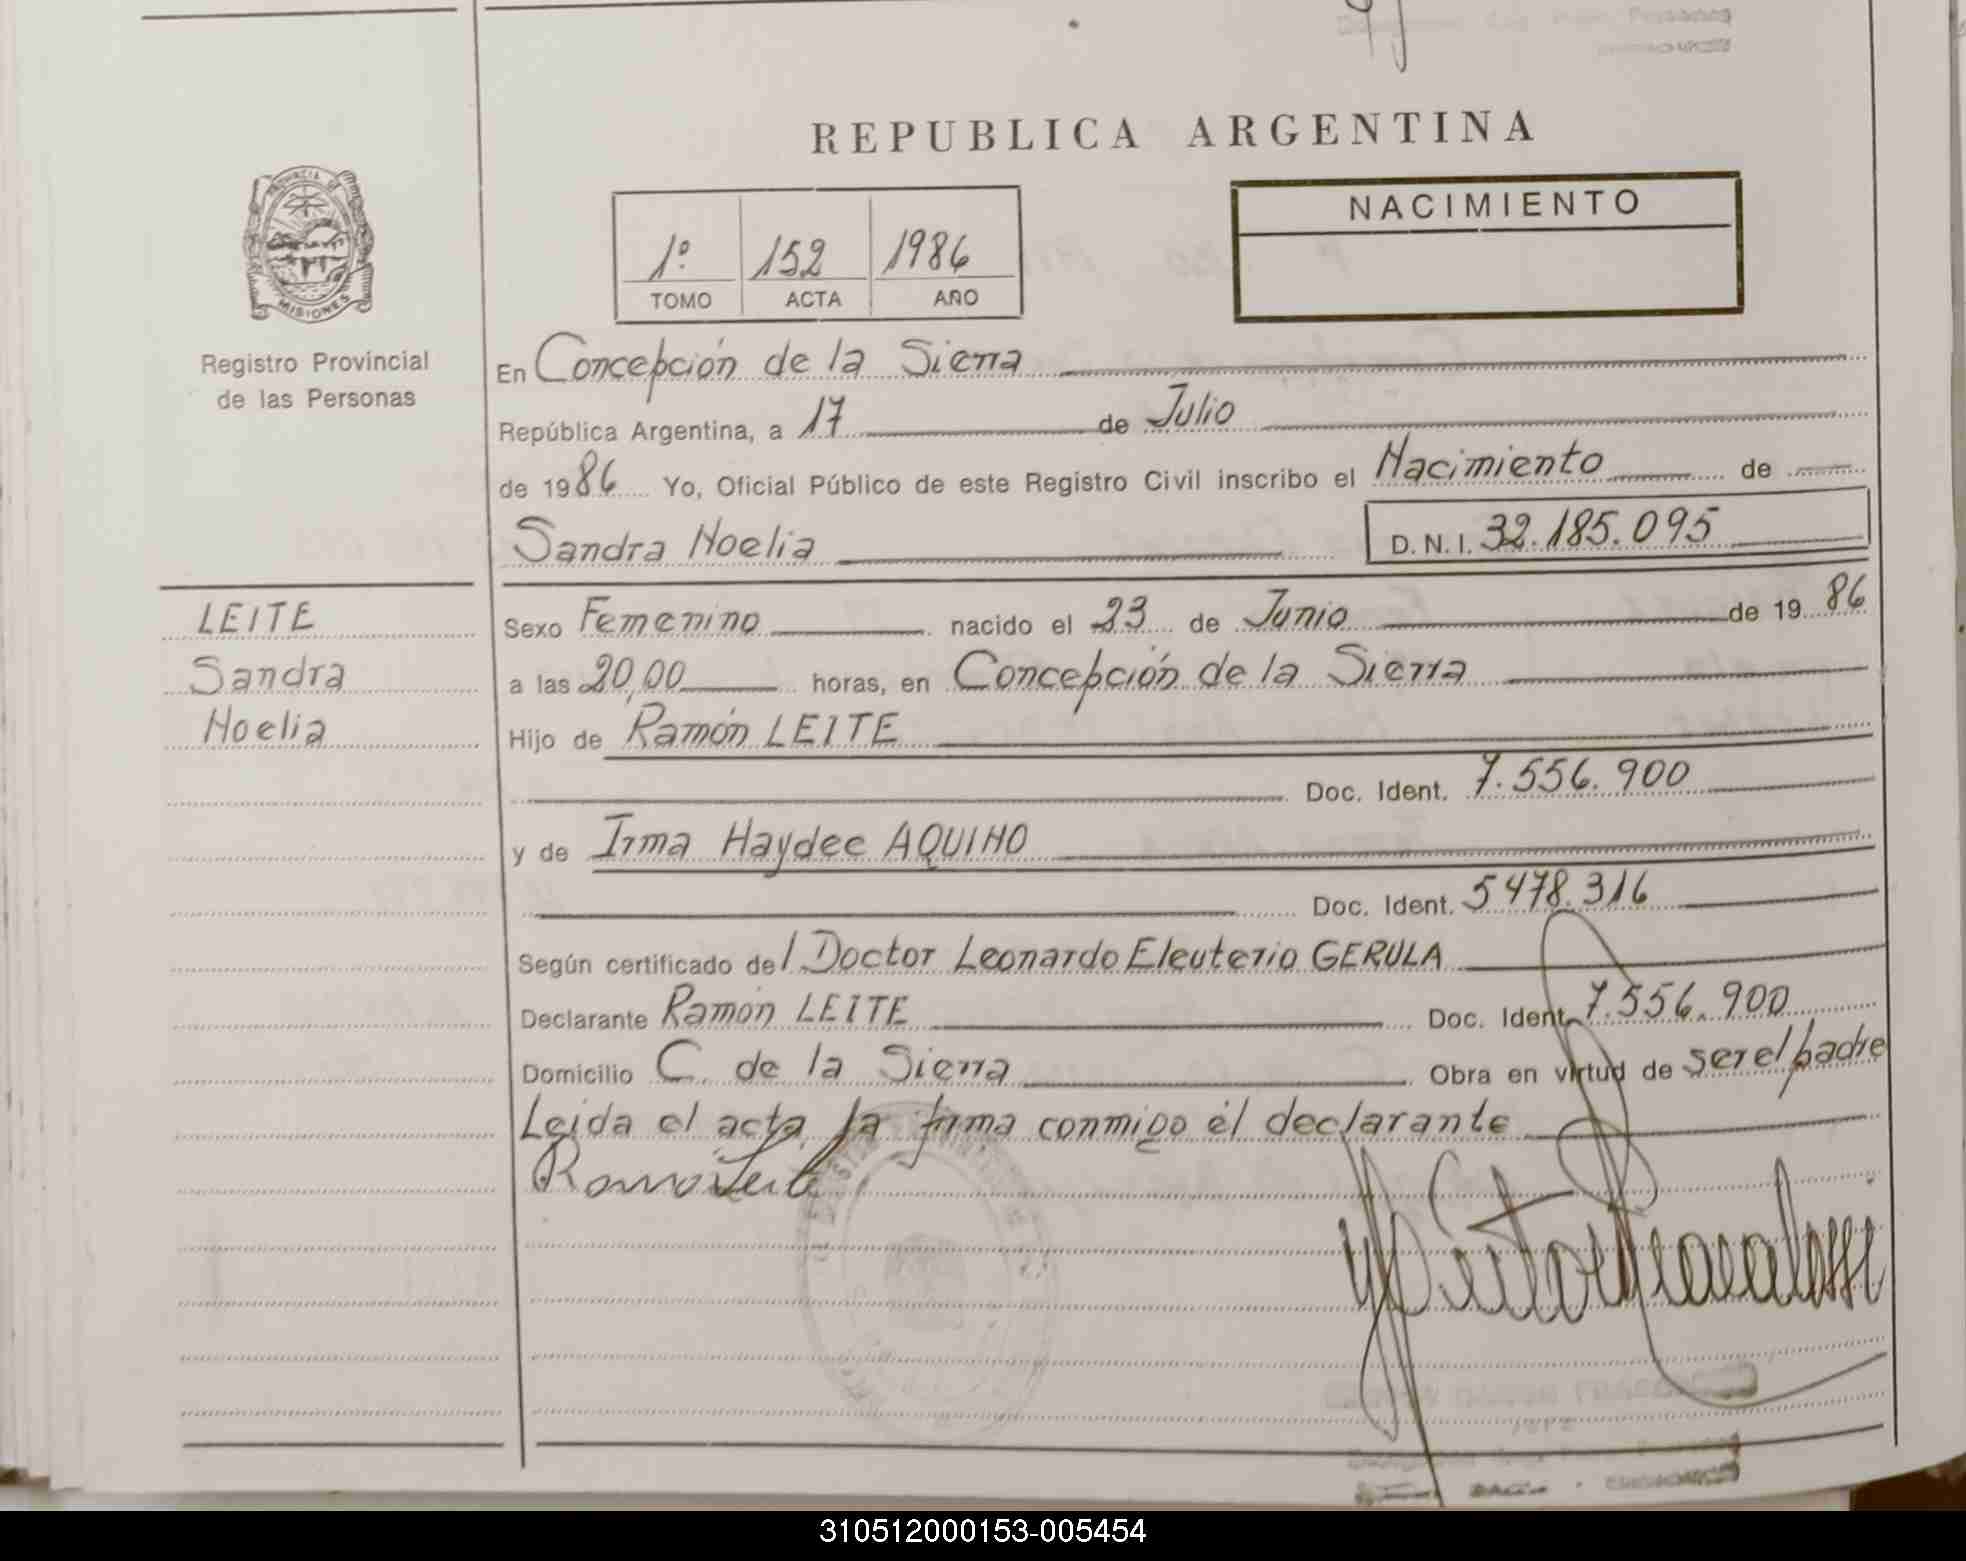 REPUBLICA ARGENTINA
PROVINCIA DE
MISIONES
Registro Provincial
de las Personas
1º 152 1986
TOMO ACTA AÑO
NACIMIENTO
En Concepción de la Sierra
República Argentina, a 17 de Julio
de 1986 Yo, Oficial Público de este Registro Civil inscribo el Nacimiento de
Sandra Noelia D.N.I. 32.185.095
LEITE
Sandra
Noelia
Sexo Femenino nacido el 23 de Junio de 19 86
a las 20,00 horas, en Concepción de la Sierra
Hijo de Ramón LEITE
Doc. Ident. 7.556.900
y de Irma Haydee AQUINO
Doc. Ident. 5478.316
Según certificado del Doctor Leonardo Eleuterio GERULA
Declarante Ramón LEITE Doc. Ident. 7.556.900
Domicilio C. de la Sierra Obra en virtud de ser el padre
Leida el acta la firma conmigo el declarante
310512000153-005454